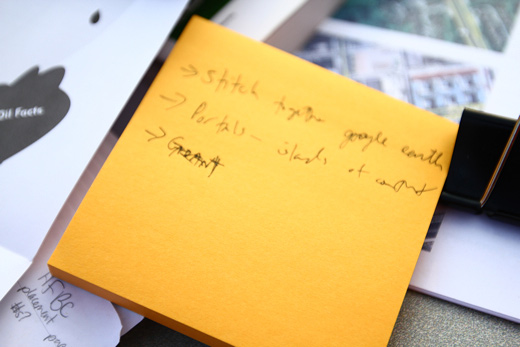 Oil Facts
→ Stitch together google earth
→ Portals – islands of content
→ GRANT
HFBC
placement